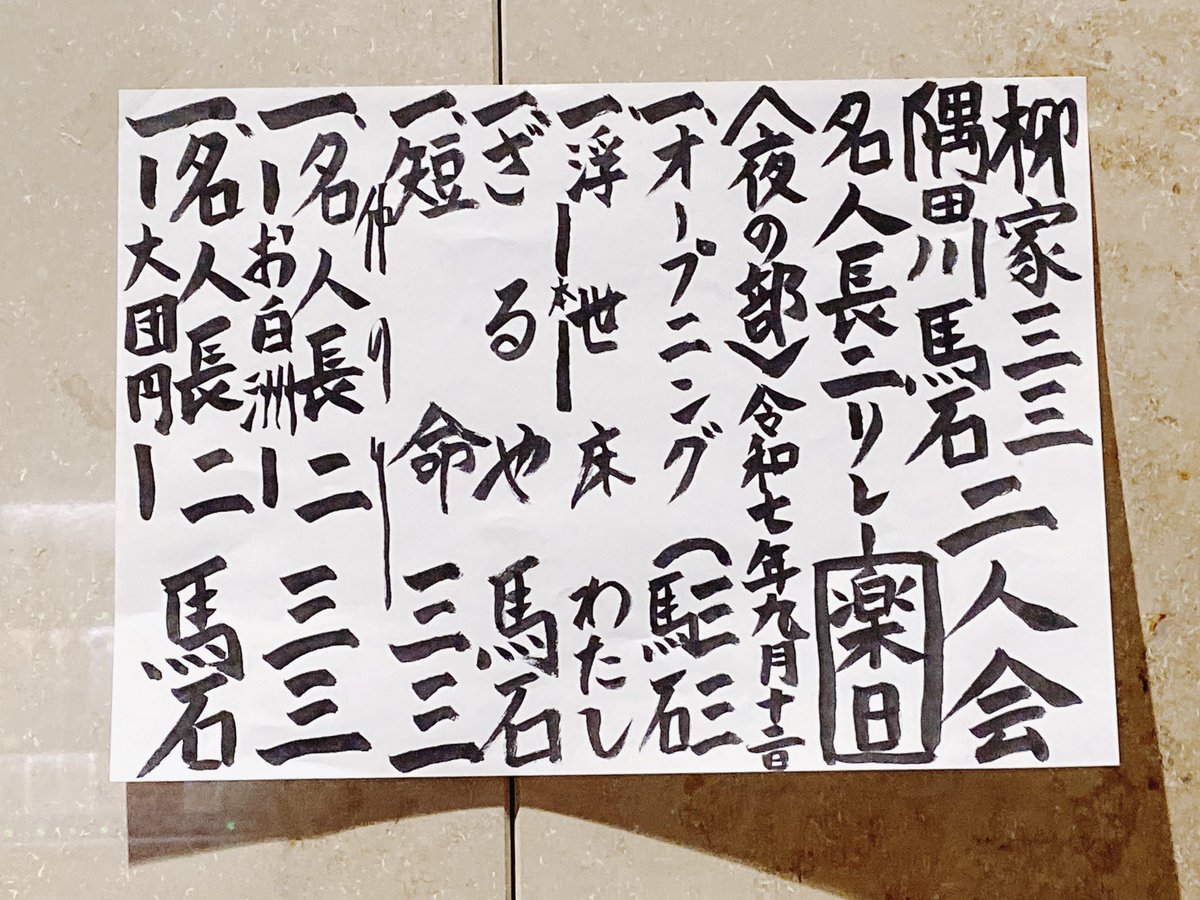 柳家三三
隅田川馬石 二人会
名人長二リレー 楽日
〈夜の部〉令和七年九月十三日
一、オープニング (三三 馬石)
一、浮世床 ー本ー わたし
一、ざるや 馬石
一、短命 三三
仲入り
一、名人長二 ーお白洲ー 三三
一、名人長二 ー大団円ー 馬石